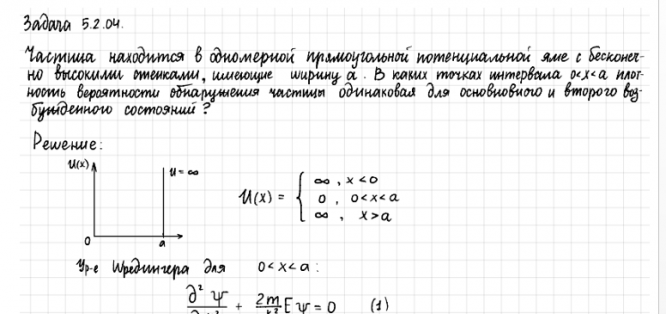 Задача 5.2.04.
Частица находится в одномерной прямоугольной потенциальной яме с бесконеч-
но высокими стенками, имеющие ширину a. В каких точках интервала 0<x<a плот-
ность вероятности обнаружения частицы одинаковая для основного и второго воз-
бужденного состояний?
Решение:
U(x)
U=∞
0
a
U(x) = { ∞, x<0
0, 0<x<a
∞, x>a
Ур-е Шредингера для 0<x<a:
∂²Ψ + 2m EΨ=0 (1)